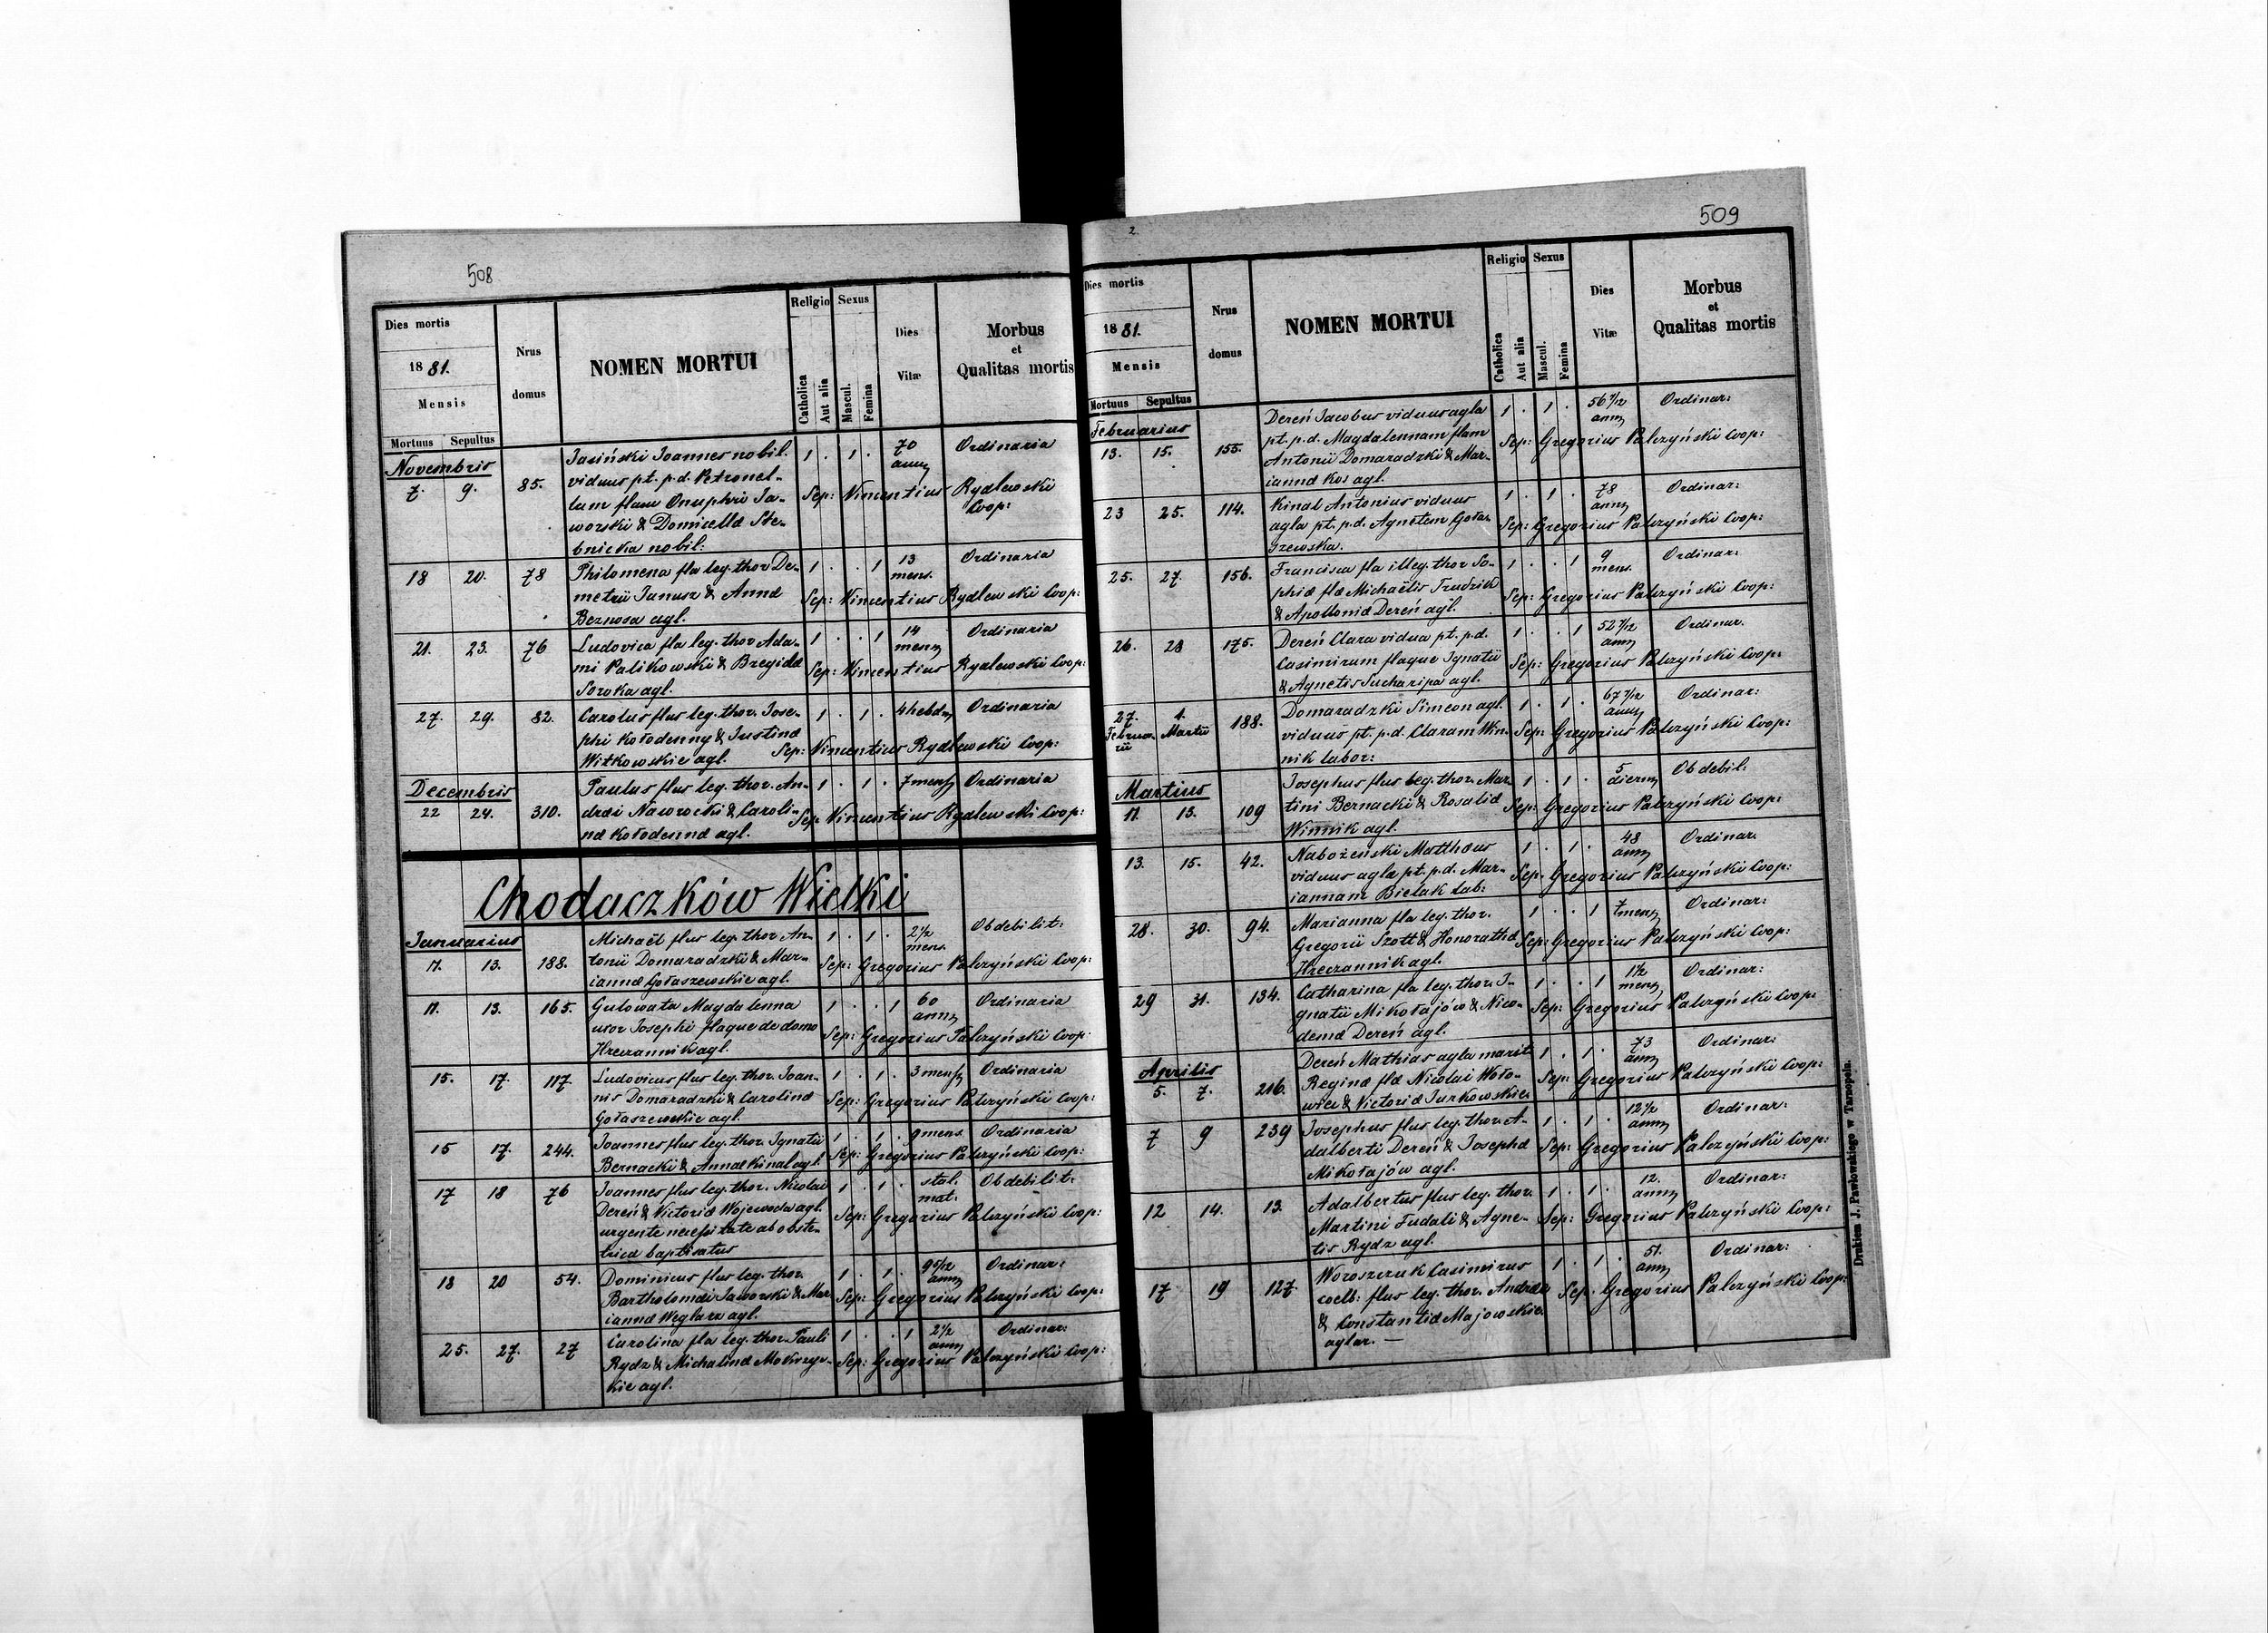 508
Dies mortis
1881.
Mensis
Mortuus Sepultus
Nrus
domus
NOMEN MORTUI
Religio
Catholica
Aut alia
Sexus
Mascul.
Femina
Dies
Vitæ
Morbus
et
Qualitas mortis
Novembris
7. 9. 85. Jasiński Joannes nobil. 1 . 1 . 70 anny Ordinaria
viduus pt. p.d. Petronel-
lam flam Onuphrii Ja-
worski & Domicella Ste-
bnicka nobil:
Sep: Vincentius Rydlewski
Coop:
18 20. 78 Philomena fla leg. thor De- 1 . . 1 13 mens. Ordinaria
metrii Janusz & Anna
Beznosa agl.
Sep: Vincentius Rydlewski Coop:
21. 23. 76 Ludovica fla leg. thor Ada- 1 . . 1 14 mens Ordinaria
mi Palikowski & Bregida
Soroka agl.
Sep: Vincentius Rydlewski Coop:
27. 29. 82. Carolus flus leg. thor. Jose- 1 . 1 . 4 hebd Ordinaria
phi Kołodenny & Justina
Witkowskie agl.
Sep: Vincentius Rydlewski Coop:
Decembris
22 24. 310. Paulus flus leg. thor. An- 1 . 1 . 7 mens Ordinaria
dreæ Nawrocki & Caroli-
na Kołodenna agl.
Sep: Vincentius Rydlewski Coop:
Chodaczków Wielki
Januarius
11. 13. 188. Michaël flus leg. thor An- 1 . 1 . 2½ mens. Ob debilit:
tonii Domaradzki & Mar-
ianna Gołaszewskie agl.
Sep: Gregorius Palczyński Coop:
11. 13. 165. Gulowata Magdalenna 1 . . 1 60 anny Ordinaria
uxor Josephi flaque de domo
Hreczannik agl.
Sep: Gregorius Palczyński Coop:
15. 17. 117. Ludovicus flus leg. thor. Joan- 1 . 1 . 3 mens Ordinaria
nis Domaradzki & Carolina
Gołaszewskie agl.
Sep: Gregorius Palczyński Coop:
15 17. 244. Joannes flus leg. thor. Ignatii 1 . 1 . 9 mens Ordinaria
Bernacki & Annæ Kinal agl.
Sep: Gregorius Palczyński Coop:
17 18 76 Joannes flus leg. thor. Nicolai 1 . 1 . stat. mat. Ob debilit:
Dereń & Victoria Wojewoda agl.
urgente necessitate ab obste-
trice baptisatus
Sep: Gregorius Palczyński Coop:
18 20 54. Dominicus flus leg. thor. 1 . 1 . 9 5/12 anny Ordinar:
Bartholomæi Jaworski & Mar
ianna Węglarz agl.
Sep: Gregorius Palczyński Coop:
25. 27. 27 Carolina fla leg. thor. Pauli 1 . . 1 2½ anny Ordinar:
Rydz & Michalina Mokrzyc-
kie agl.
Sep: Gregorius Palczyński Coop:
2.
509
Dies mortis
1881.
Mensis
Mortuus Sepultus
Nrus
domus
NOMEN MORTUI
Religio
Catholica
Aut alia
Sexus
Mascul.
Femina
Dies
Vitæ
Morbus
et
Qualitas mortis
Februarius
13. 15. 155. Dereń Jacobus viduus agla 1 . 1 . 56 7/12 anny Ordinar:
pt. p.d. Magdalennam flam
Antonii Domaradzki & Mar-
ianna Kos agl.
Sep: Gregorius Palczyński Coop:
23 25. 114. Kinal Antonius viduus 1 . 1 . 78 anny Ordinar:
agla pt. p.d. Agnetem Goła-
szewska.
Sep: Gregorius Palczyński Coop:
25. 27. 156. Francisca fla illeg. thor So- 1 . . 1 9 mens. Ordinar:
phiæ flæ Michaëlis Trudzik
& Apollonia Dereń agl.
Sep: Gregorius Palczyński Coop:
26. 28 175. Dereń Clara vidua pt. p.d. 1 . . 1 52 7/12 anny Ordinar.
Casimirum flaque Ignatii
& Agnetis Sucharipa agl.
Sep: Gregorius Palczyński Coop:
27. Februarii 1. Martii 188. Domaradzki Simeon agl. 1 . 1 . 67 7/12 anny Ordinar:
viduus pt. p.d. Claram Win-
nik labor:
Sep: Gregorius Palczyński Coop:
Martius
11. 13. 109 Josephus flus leg. thor. Mar- 1 . 1 . 5 dierum Ob debil:
tini Bernacki & Rosalia
Winnik agl.
Sep: Gregorius Palczyński Coop:
13. 15. 42. Nabożeński Matthæus 1 . 1 . 48 anny Ordinar.
viduus agla pt. p.d. Mar-
iannam Bielak lab:
Sep. Gregorius Palczyński Coop:
28. 30. 94. Marianna fla leg. thor. 1 . . 1 7 mens Ordinar:
Gregorii Szott & Honoratha
Hreczannik agl.
Sep: Gregorius Palczyński Coop:
29 31. 134. Catharina fla leg. thor. I- 1 . . 1 1½ mens Ordinar:
gnatii Mikołajów & Nico-
dema Dereń agl.
Sep: Gregorius Palczyński Coop:
Aprilis
5. 7. 216. Dereń Mathias agla marit 1 . 1 . 73 anny Ordinar:
Reginæ flæ Nicolai Woło-
wiec & Victoria Jurkowskie
Sep: Gregorius Palczyński Coop:
7 9 239 Josephus flus leg. thor. A- 1 . 1 . 12½ anny Ordinar:
dalberti Dereń & Josepha
Mikołajów agl.
Sep: Gregorius Palczyński Coop:
12 14. 13. Adalbertus flus leg. thor. 1 . 1 . 12. anny Ordinar:
Martini Fudali & Agne-
tis Rydz agl.
Sep: Gregorius Palczyński Coop:
17 19 127. Woroszczuk Casimirus 1 . 1 . 51. anny Ordinar:
coelb: flus leg. thor. Andreæ
& Constantia Majowskie
aglar. —
Sep. Gregorius Palczyński Coop:
Drukiem J. Pawłowskiego w Tarnopolu.